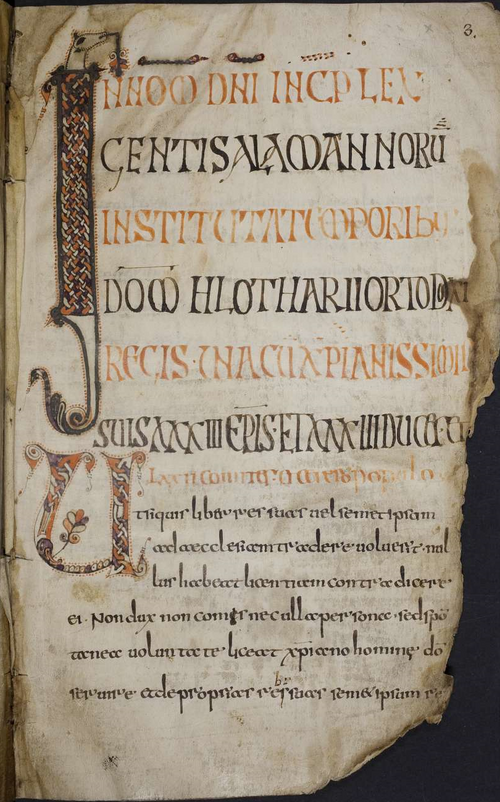 3.
IN NOM DNI INCP LEX
GENTIS ALAMANNORŪ
INSTITUTA TEMPORIBU
DOM HLOTHARII ORTODOXI
REGIS · UNA CU XPIANISSIMI
SUIS XXXIII EPIS · ET XXXIIII DUC
LXXII COMITES & CETERO POPULO
Ut siquis liber res suas uel semetipsum
ad aecclesiam tradere uoluerit nul
lus habeat licentiam contradicere
ei · Non dux non comis nec ulla persona · sed spō
tanea uoluntate liceat xp̄iano homine dō
seruire et de proprias res suas semetipsum re